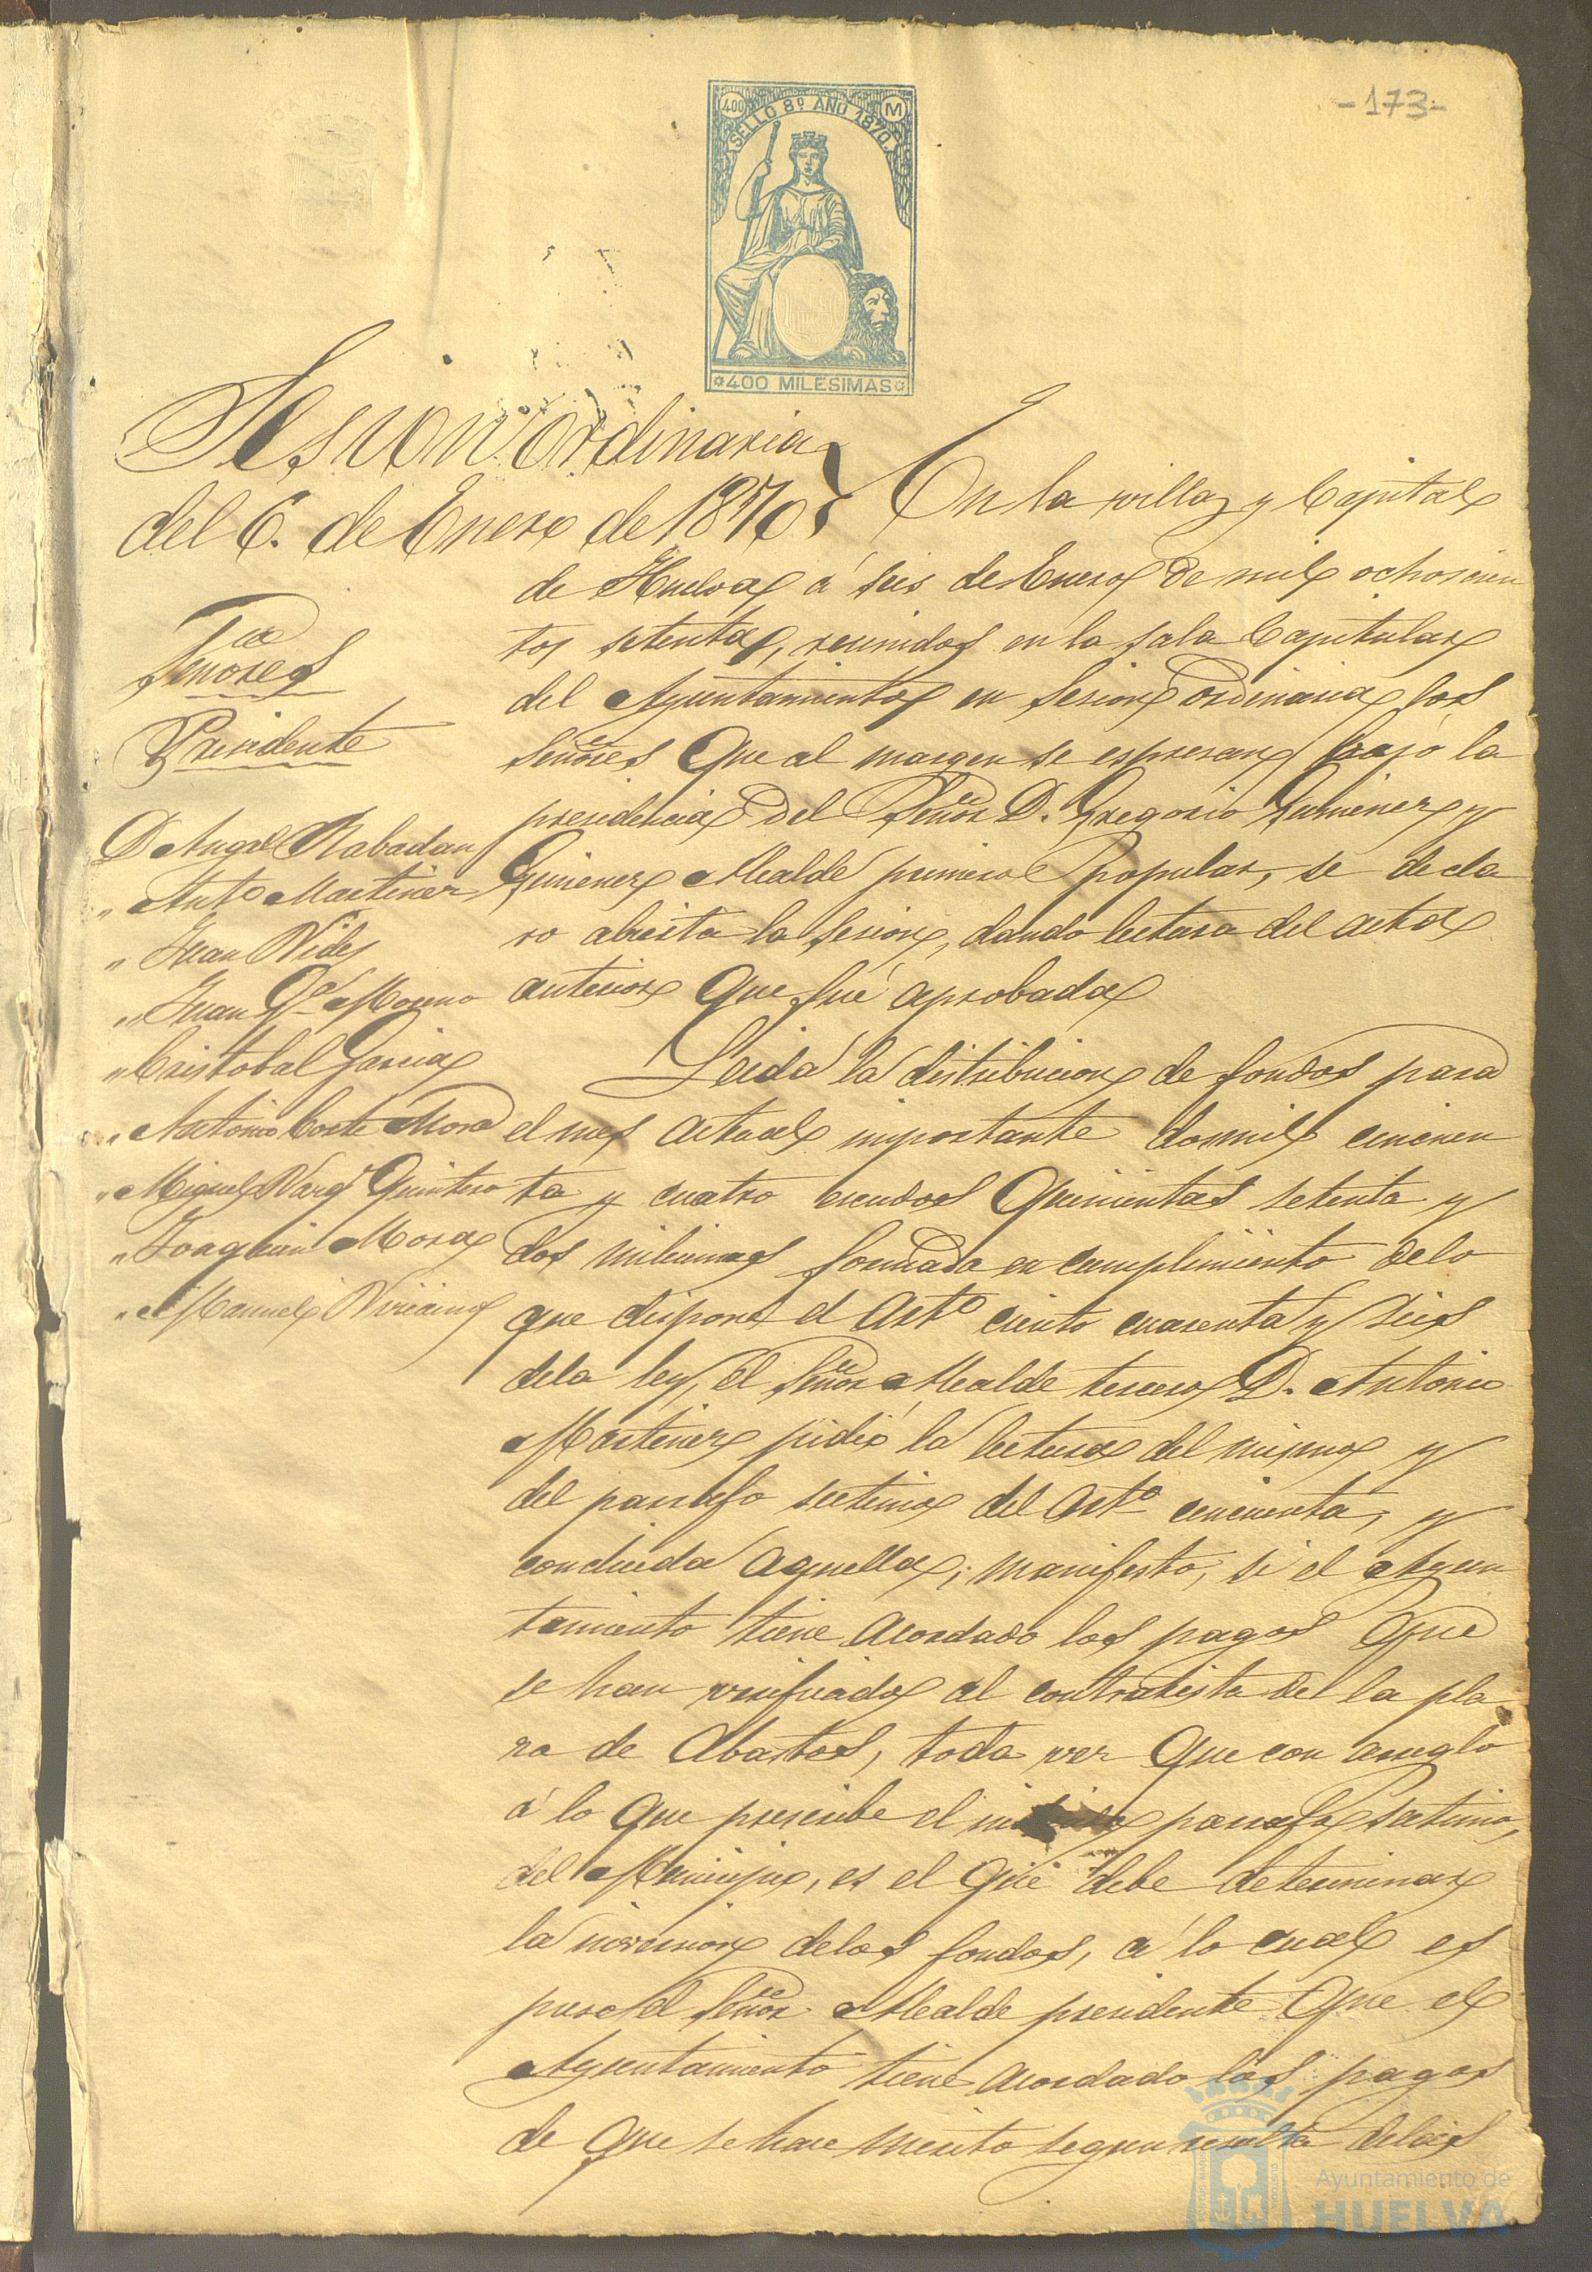 -173-
400 M
SELLO 8º AÑO 1870.
400 MILESIMAS
Sesion ordinaria
del 6. de Enero de 1870
Señores
Presidente
D. Angel Rabadan
" Antº Martinez
" Juan Vides
" Juan Gª Moreno
" Cristobal Garcia
" Antonio Corte Mora
" Miguel Varg Quintero
" Joaquin Mora
" Manuel
En la villa y Capital
de Huelva á seis de Enero de mil ochocien
tos setenta, reunidos en la sala Capitular
del Ayuntamiento en sesion ordinaria los
Señores que al margen se espresan bajo la
presidencia del Señor D. Gregorio Jimenez y
Jimenez Alcalde primero Popular, se decla
ro abierta la sesion, dando lectura del acta
anterior que fué aprobada
Leida la distribucion de fondos para
el mes actual importante dosmil cincuen
ta y cuatro escudos quinientas setenta y
dos milesimas formada en cumplimiento de lo
que dispone el Artº ciento cuarenta y seis
de la ley, el Señor Alcalde tercero D. Antonio
Martinez pidió la lectura del mismo y
del parrafo septimo del Artº cincuenta, y
concluida aquella, manifesto, si el Ayun
tamiento tiene acordado los pagos que
se han verificado al contratista de la pla
za de Abastos, toda vez que con arreglo
á lo que prescribe el mismo parrafo septimo,
del Municipio, es el que debe determinar
la inversion de los fondos, á lo cual es
puso el Señor Alcalde presidente que el
Ayuntamiento tiene acordado los pagos
de que se hace merito segun resulta de las
Ayuntamiento de
HUELVA